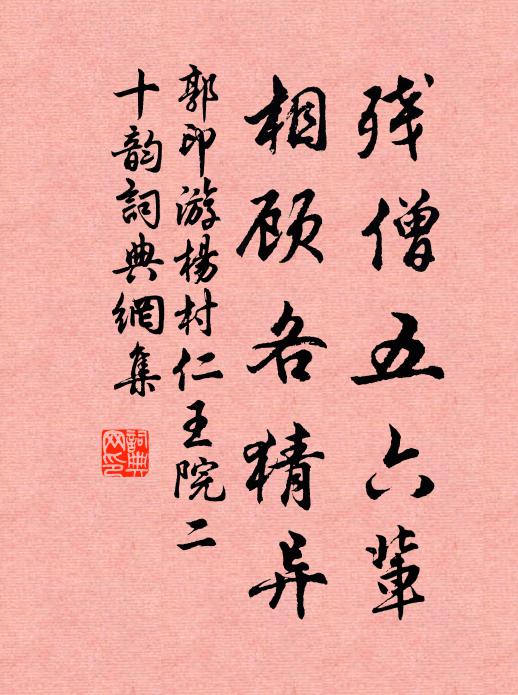 残僧五六辈
相顾各猜异
郭印游杨村仁王院二
十韵詞典網集
詞典
网印